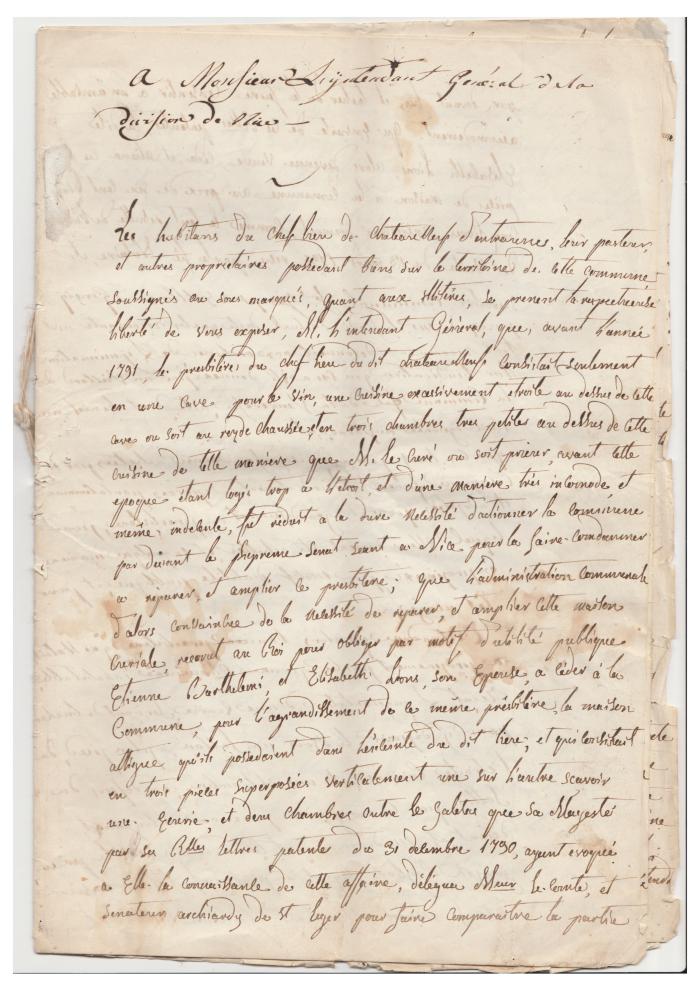 A Monsieur L'intendant Général de la
division de Nice —
Les habitans du chef lieu de chateauneuf d'entraunes, leur pasteur,
et autres proprietaires possedant biens sur le territoire de cette commune
soussignés ou sous marqués, quant aux illitérés, se prenent la respectueuse
liberté de vous exposer, M. l'intendant Général, que, avant l'année
1791, le presbitère du chef lieu du dit chateauneuf consistait seulement
en une cave pour le vin, une cuisine excessivement etroite au dessus de cette
cave ou soit au rez de chaussée, et en trois chambres tres petites au dessus de cette
cuisine de telle maniere que M. le curé ou soit prieur, avant cette
epoque étant logé trop a l'etroit, et d'une maniere très incomode, et
même indecente, fut réduit a la dure necessité d'actionner la commune
par devant le supreme senat seant a Nice pour la faire condamner
a reparer, et amplier le presbitère; que l'administration communale
d'alors convaincue de la necessité de reparer, et amplier cette maison
curiale, recourut au Roi pour obliger par motif d'utilité publique
Etienne Barthelemi, et Elisabeth Lions, son Epouse, a céder à la
Commune, pour l'agrandissement de la même presbitère, la maison
attigue qu'ils possedaient dans l'enceinte du dit lieu, et qui consistait
en trois pièces superposées verticalement une sur l'autre scavoir
une écurie, et deux chambres outre le galetas que sa Majesté
par ses Rlles lettres patente du 31 decembre 1790, ayant evoqué
a Elle la connaissance de cette affaire, délégua Meur le comte, et
senateur archiardy de st leger pour faire comparaitre la partie